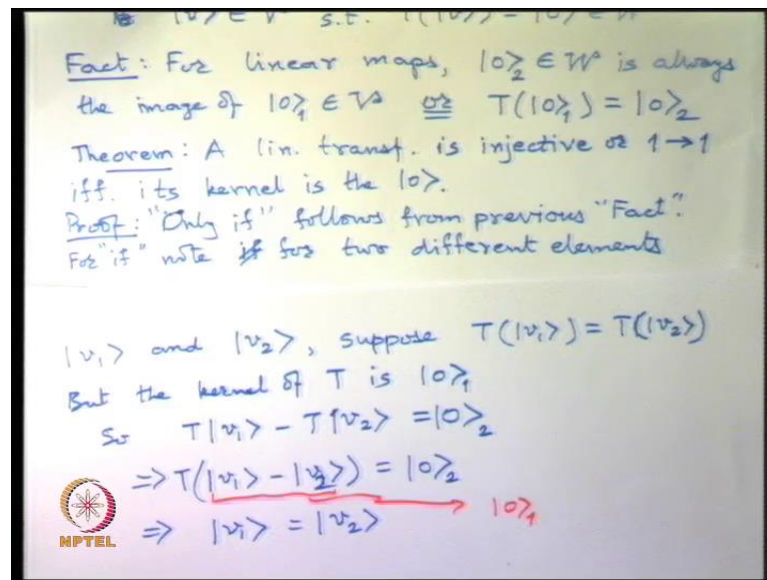 |v⟩ ∈ V s.t. T(|v⟩) = |0⟩ ∈ W
Fact: For linear maps, |0⟩₂ ∈ W is always
the image of |0⟩₁ ∈ V or T(|0⟩₁) = |0⟩₂
Theorem: A lin. transf. is injective or 1→1
iff. its kernel is the |0⟩.
Proof: "Only if" follows from previous "Fact".
For "if" note for two different elements
|v₁⟩ and |v₂⟩, suppose T(|v₁⟩) = T(|v₂⟩)
But the kernel of T is |0⟩₁
So T|v₁⟩ - T|v₂⟩ = |0⟩₂
⇒ T(|v₁⟩ - |v₂⟩) = |0⟩₂
|0⟩₁
⇒ |v₁⟩ = |v₂⟩
NPTEL